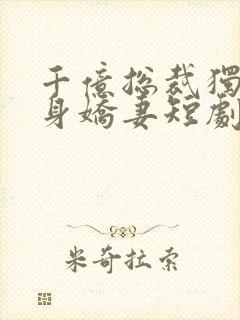 千億总裁獨
身嬌妻短劇
米奇拉索